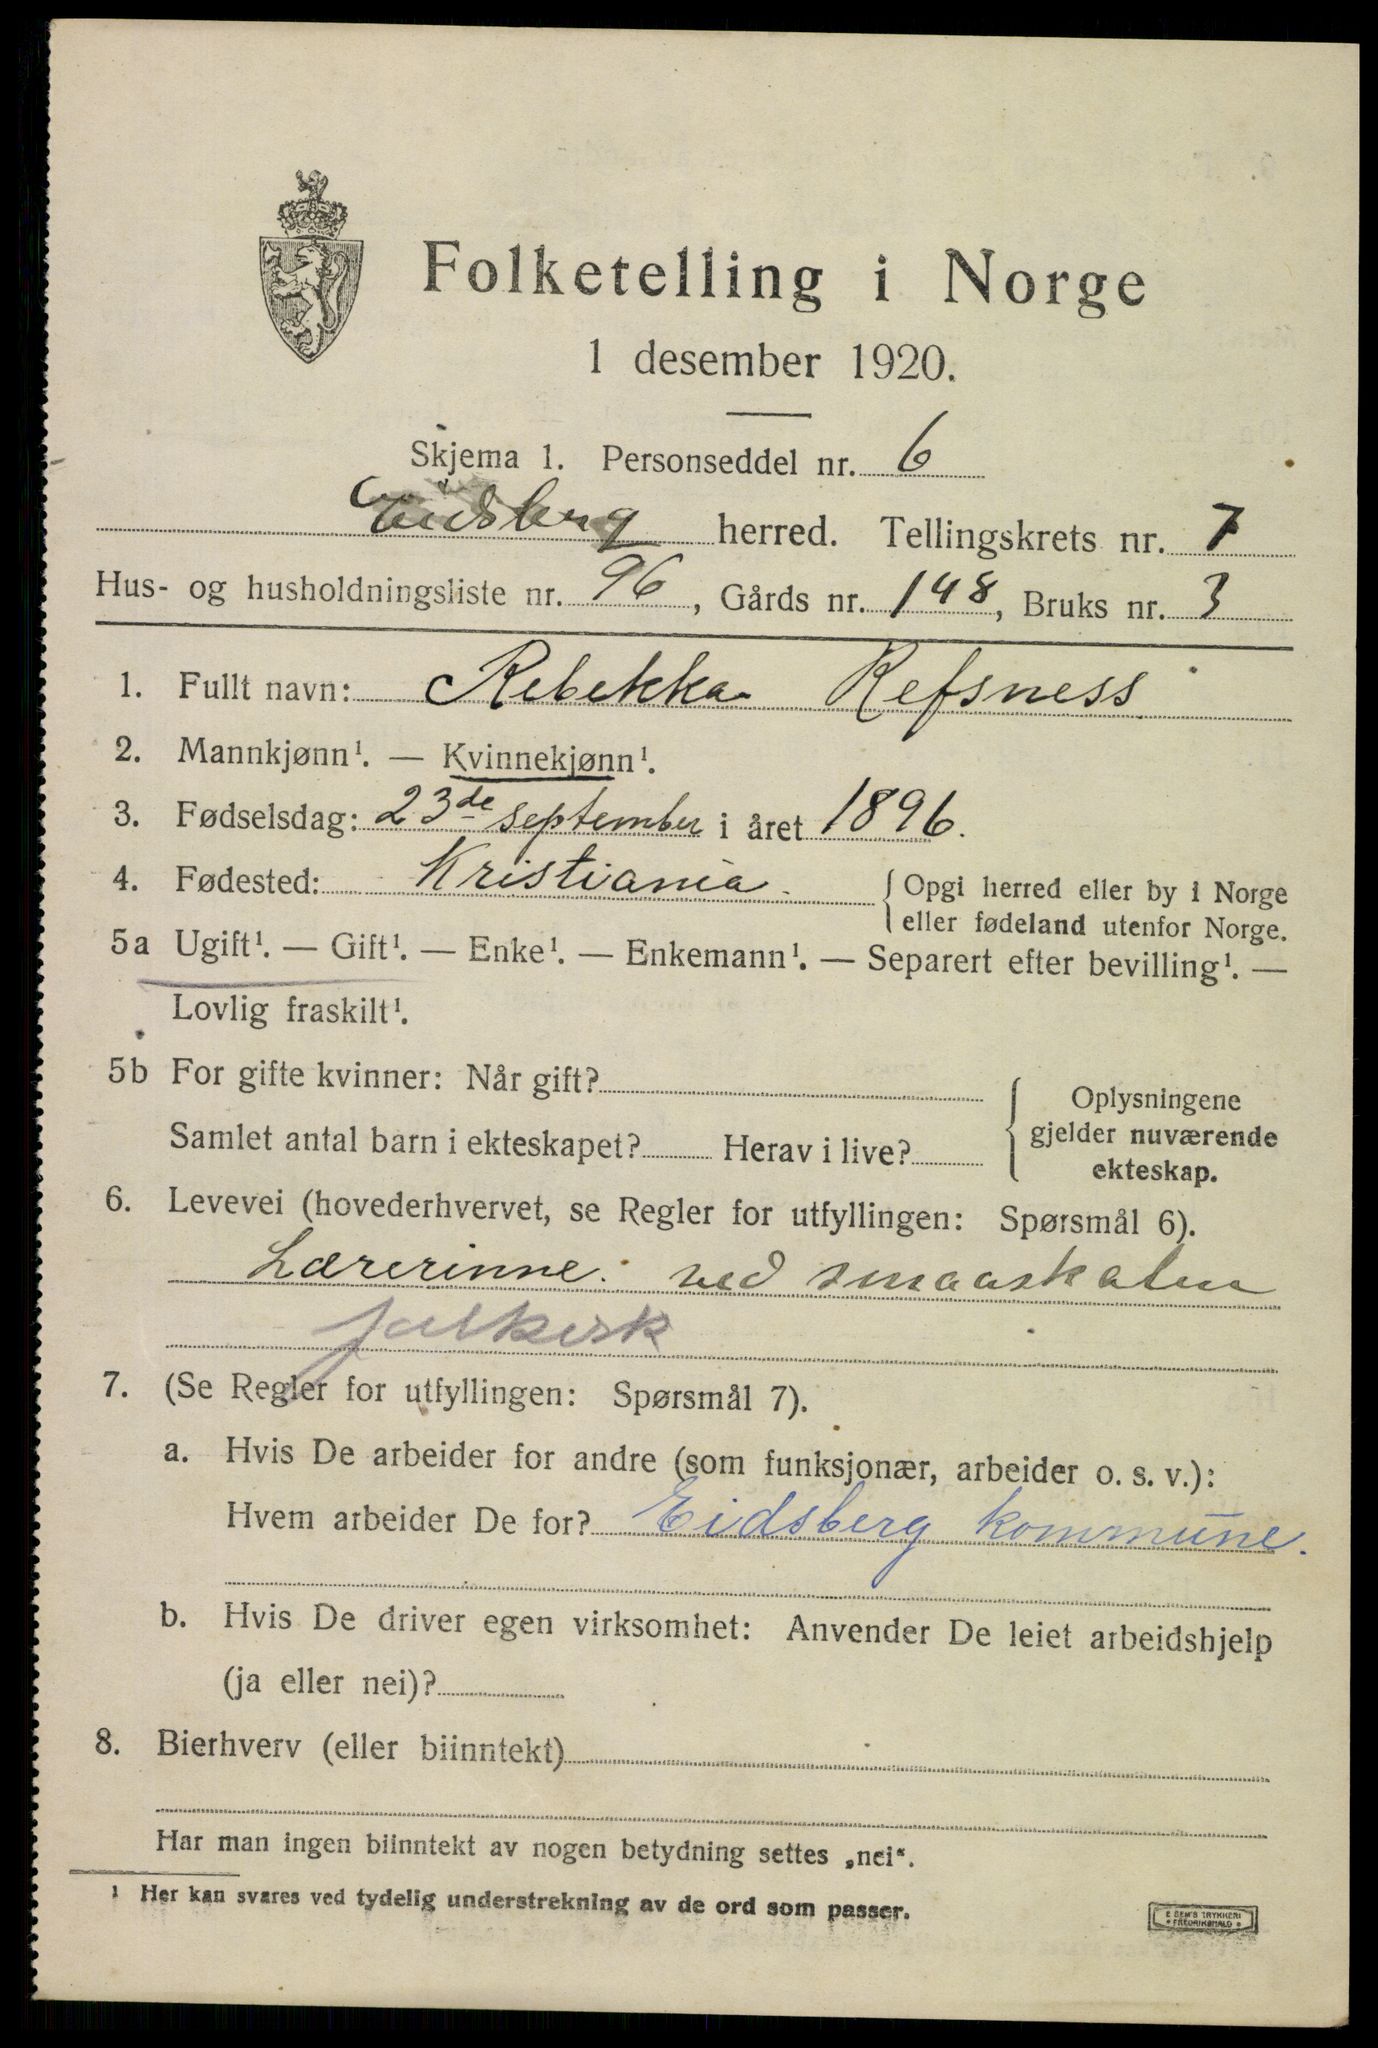 Folketelling i Norge
1 desember 1920.
Skjema 1. Personseddel nr. 6
Eidsberg herred. Tellingskrets nr. 7
Hus- og husholdningsliste nr. 96, Gårds nr. 148, Bruks nr. 3
1. Fullt navn: Rebekka Refsness
2. Mannkjønn¹. — Kvinnekjønn¹.
3. Fødselsdag: 23de september i året 1896.
4. Fødested: Kristiania. { Opgi herred eller by i Norge
eller fødeland utenfor Norge.
5a Ugift¹. — Gift¹. — Enke¹. — Enkemann¹. — Separert efter bevilling¹. —
Lovlig fraskilt¹.
5b For gifte kvinner: Når gift?
Samlet antal barn i ekteskapet? Herav i live?
Oplysningene
gjelder nuværende
ekteskap.
6. Levevei (hovederhvervet, se Regler for utfyllingen: Spørsmål 6).
Lærerinne. ved smaaskolen
folkesk
7. (Se Regler for utfyllingen: Spørsmål 7).
a. Hvis De arbeider for andre (som funksjonær, arbeider o. s. v.):
Hvem arbeider De for? Eidsberg kommune.
b. Hvis De driver egen virksomhet: Anvender De leiet arbeidshjelp
(ja eller nei)?
8. Bierhverv (eller biinntekt)
Har man ingen biinntekt av nogen betydning settes „nei“.
¹ Her kan svares ved tydelig understrekning av de ord som passer.
E SEM'S TRYKKERI
FREDRIKSHALD